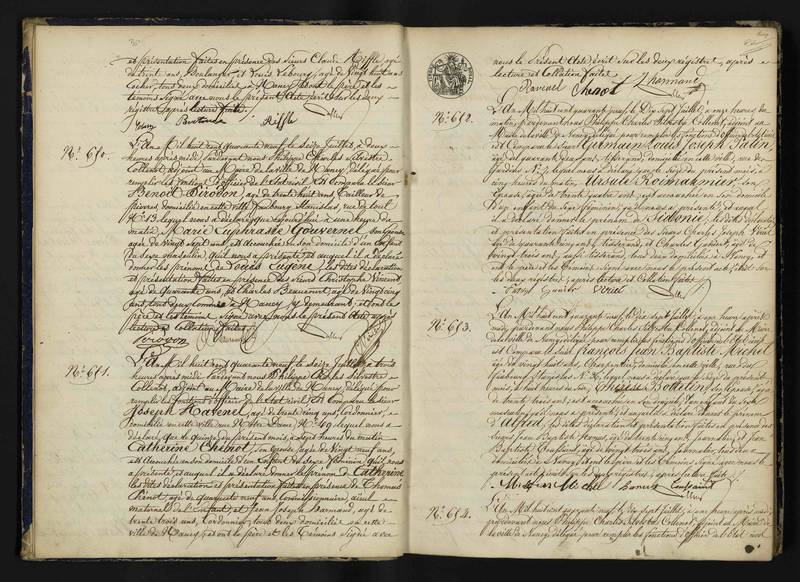 et présentation faites en présence des Sieurs Claude Riffle, agé
de trente ans, Boulanger, et Louis Lebourg, agé de Vingt huit ans
Cocher, tout deux domiciliés à Nancy, et ont le père et les
témoins Signé avec nous le présent Acte écrit sur les deux
registres après lecture faite.
Riffle
N.º 650.
L'An Mil huit cent quarante neuf, le Seize Juillet, à deux
heures après midi, Pardevant nous Philippe Charles Silvestre
Collenot, adjoint au Maire de la ville de Nancy, délégué pour
remplir les fonctions d'officier de l'état civil, Est Comparu le Sieur
Benoît Birouon, agé de trente huit ans, tailleur de
pierres domicilié en cette ville Faubourg Stanislas, rue de toul
N.º 13, lequel nous a déclaré que aujourd'hui à une heure du
matin, Marie Euphrasie Gouvernel, son épouse
agée de Vingt Sept ans, est accouchée en son domicile d'un Enfant
du Sexe masculin, qu'il nous a présenté et auquel il a déclaré
donner les prénoms de Louis Eugène, les dites déclaration
et présentation faites en présence des Sieurs Christophe Vincent
agé de quarante ans, et Charles Beaucourt, agé de Vingt cinq
ans, tous deux Commis à Nancy y demeurant, et ont le
père et les témoins Signé avec nous le présent acte après
lecture et Collation faites.
N.º 651.
L'An Mil huit cent quarante neuf, le Seize Juillet à trois
heures après midi Pardevant nous Philippe Charles Silvestre
Collenot, adjoint au Maire de la ville de Nancy, délégué pour
remplir les fonctions d'officier de l'état civil, Est Comparu le Sieur
Joseph Ravenel, agé de trente cinq ans, Cordonnier,
domicilié en cette ville rue Notre Dame N.º 49, lequel nous a
déclaré, que le quinze du présent mois, à sept heures du matin
Catherine Chenot, son épouse agée de Vingt neuf ans
est accouchée en son domicile d'un Enfant du Sexe féminin qu'il nous
a présenté et auquel il a déclaré donner le prénom de Catherine
les dites déclaration et présentation faites en présence de Thomas
Chenot, agé de quarante neuf ans, Commissionnaire, aïeul
maternel de l'Enfant et Jean Joseph Harmand, agé de
trente trois ans, Cordonnier, tous deux domiciliés en cette
ville de Nancy, et ont le père et les témoins Signé avec
nous le Présent Acte écrit sur les deux registres, après
lecture et Collation faites.
Ravenel Chenot Harmand
N.º 652.
L'An Mil huit cent quarante neuf, le Dix Sept Juillet à onze heures du
matin, pardevant nous Philippe Charles Silvestre Collenot, adjoint au
Maire de la ville de Nancy, délégué pour remplir les fonctions d'officier de l'état civil
est Comparu le Sieur Germain Louis Joseph Patin,
agé de quarante quatre ans, tisserand, domicilié en cette ville, rue des
lequel nous a déclaré que le seize du présent mois, à
cinq heures du matin, Ursule Roimarmier, son
Epouse, agée de trente quatre ans, est accouchée en son domicile
d'un enfant du Sexe féminin, qu'il nous a présenté, et auquel
il a déclaré donner le prénom de Sidonie, les dites déclaration
et présentation faites en présence des Sieurs Charles Joseph Viriel
agé de quarante cinq ans, tisserand, et Charles Gautier, agé de
vingt trois ans, aussi tisserand, tous deux domiciliés à Nancy, et
ont le père et les témoins Signé avec nous le présent acte écrit sur
les deux registres, après lecture et Collation faites.
N.º 653.
L'An Mil huit cent quarante neuf, le dix sept Juillet, à une heure après
midi, pardevant nous Philippe Charles Silvestre Collenot, adjoint au Maire
de la ville de Nancy, délégué pour remplir les fonctions d'officier de l'Etat civil
est Comparu le Sieur François Jean Baptiste Michel
agé de vingt huit ans, Charpentier, domicilié en cette ville, rue du
faubourg Stanislas lequel nous a déclaré que le seize du présent
mois, à huit heures du soir, Bolletin, son épouse, agée
de trente trois ans, est accouchée en son domicile, d'un enfant du Sexe
masculin, qu'il nous a présenté, et auquel il a déclaré donner le prénom
d'Alfred, les dites déclaration et présentation faites en présence des
Sieurs Jean Baptiste agé de trente cinq ans, journalier, et Jean
Baptiste Toussaint, agé de vingt trois ans, journalier, tous deux
domiciliés à Nancy, et ont le père et les témoins Signé avec nous le
présent acte écrit sur les deux registres, après lecture faite.
Michel Toussaint
N.º 654.
L'An Mil huit cent quarante neuf, le dix sept Juillet, à une heure après midi,
pardevant nous Philippe Charles Silvestre Collenot, adjoint au Maire de
la ville de Nancy, délégué pour remplir les fonctions d'officier de l'Etat civil